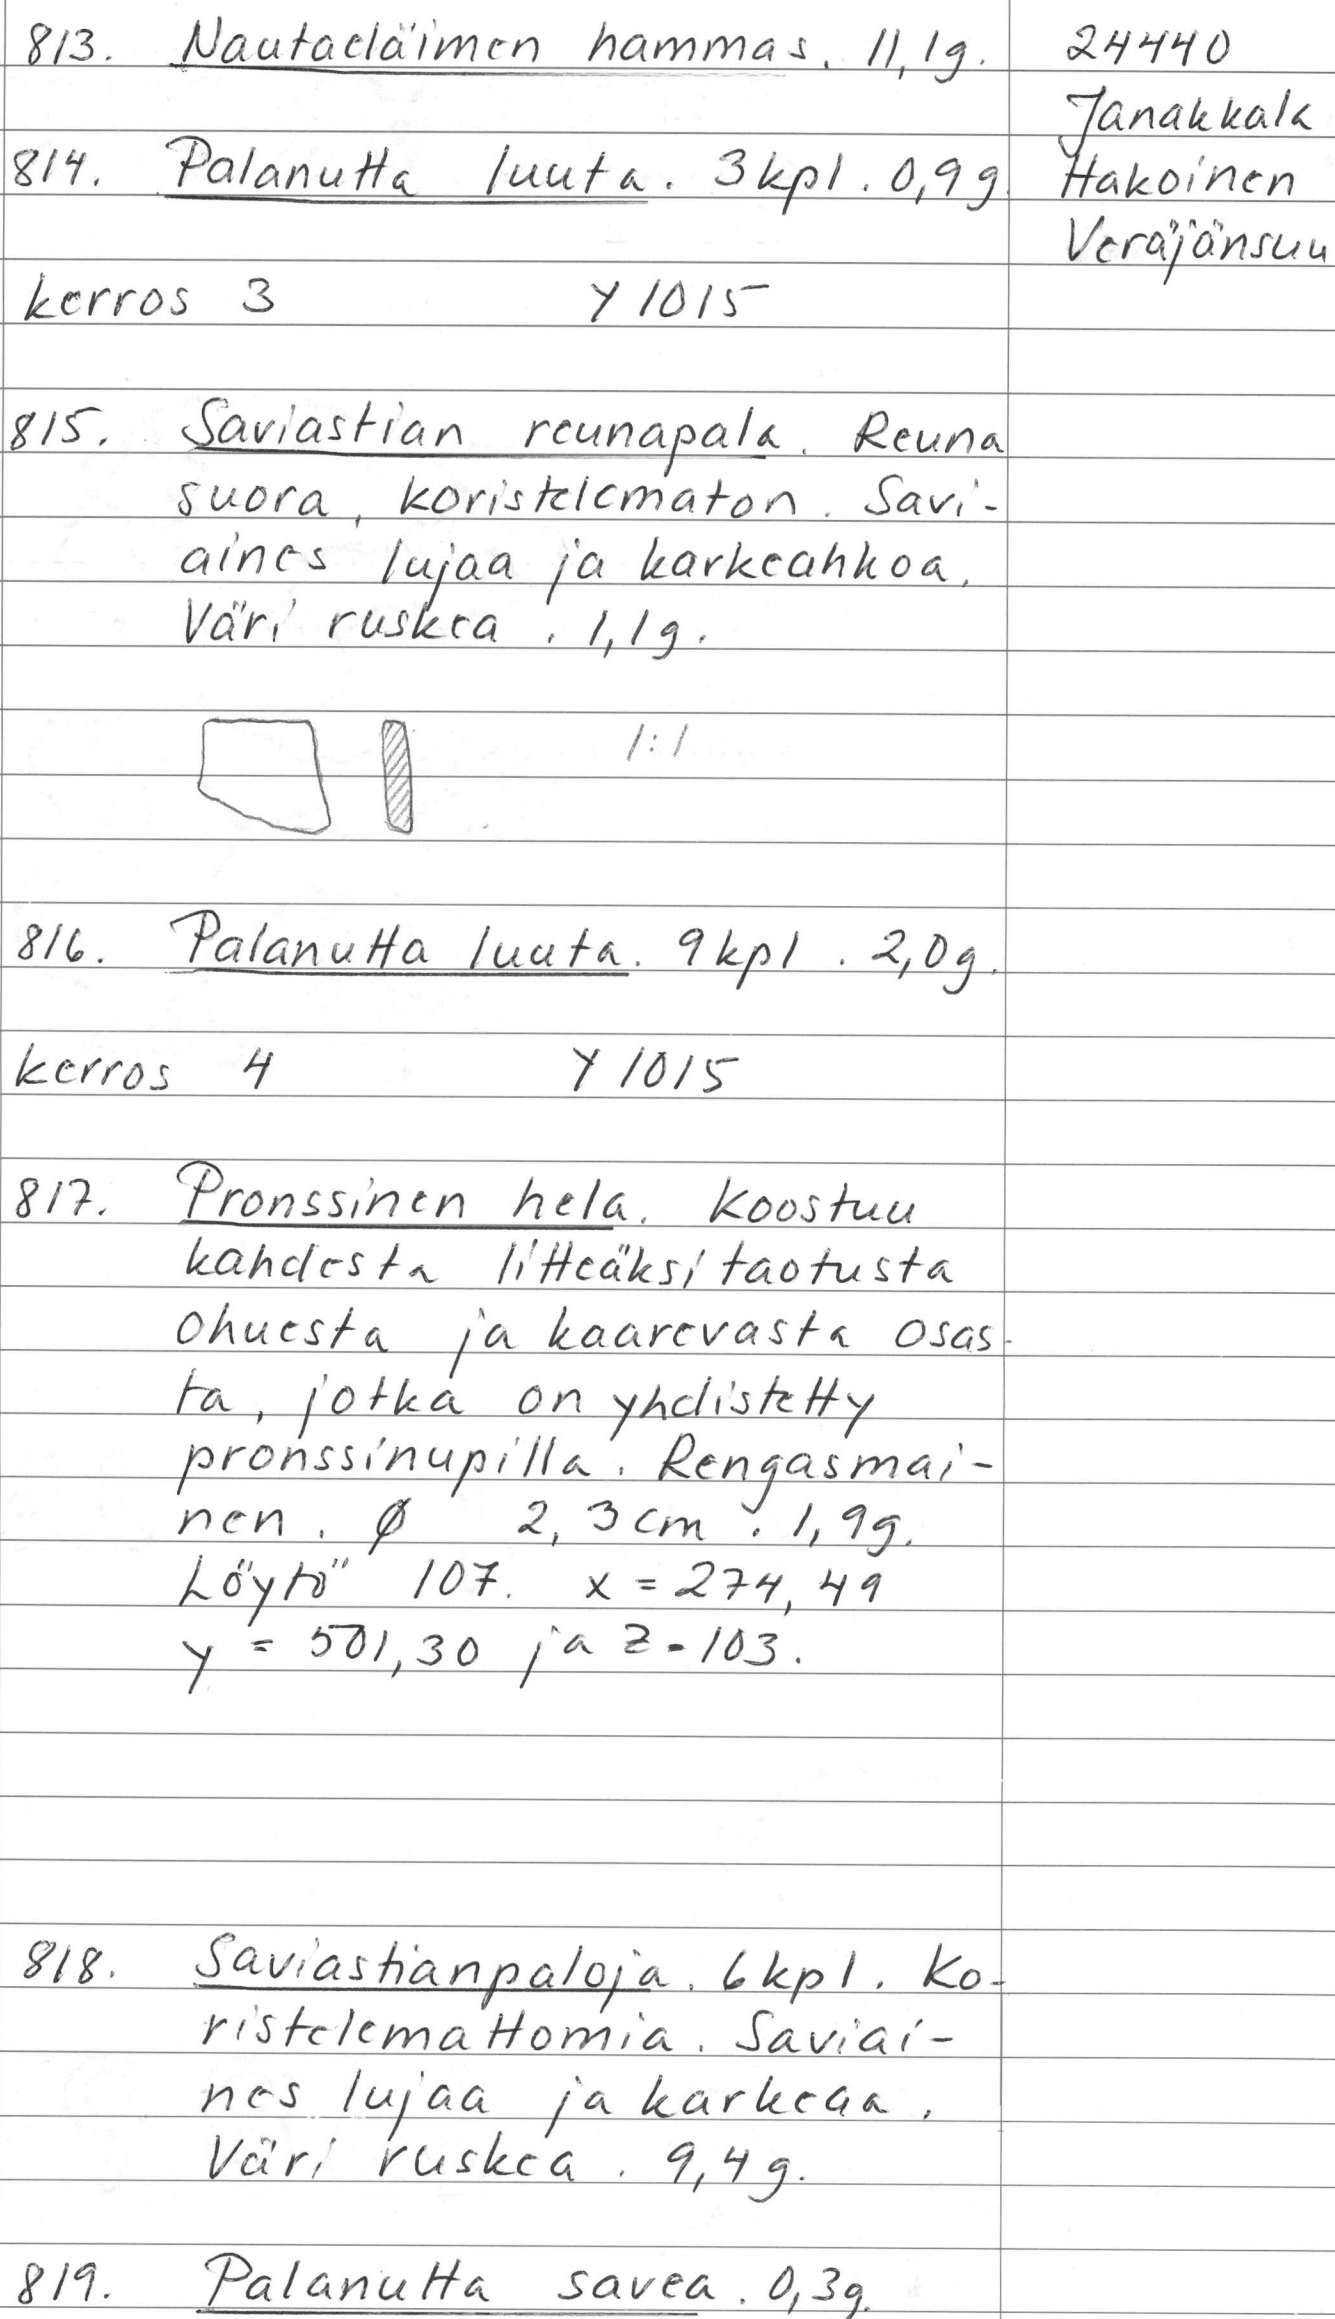 813. Nautaeläimen hammas. 11,1g.
24440
Janakkala
Hakoinen
Veräjänsuu
814. Palanutta luuta. 3kpl. 0,9g
kerros 3 Y 1015
815. Saviastian reunapala. Reuna
suora, koristelematon. Savi-
aines lujaa ja karkeahkoa.
Väri ruskea. 1,1g.
1:1
816. Palanutta luuta. 9kpl. 2,0g.
kerros 4 Y 1015
817. Pronssinen hela. Koostuu
kahdesta litteäksi taotusta
ohuesta ja kaarevasta osas-
ta, jotka on yhdistetty
pronssinupilla. Rengasmai-
nen. Ø 2,3cm. 1,9g.
Löytö 107. x = 274,49
y = 501,30 ja z-103.
818. Saviastianpaloja. 6kpl. Ko-
ristelemattomia. Saviai-
nes lujaa ja karkeaa.
Väri ruskea. 9,4g.
819. Palanutta savea. 0,3g.